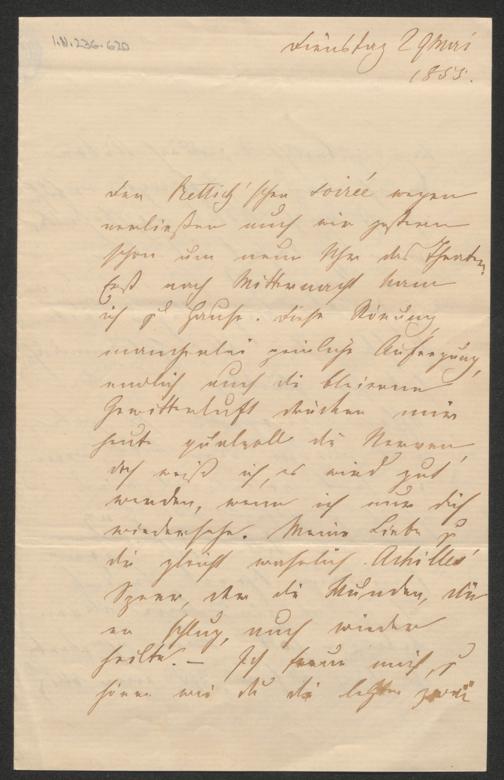 I.N. 236.620
Dienstag 29 Mai
1855.
Der Rettich'schen soirée wegen
verließen auch wir gestern
schon um neun Uhr das Theater,
Erst nach Mitternacht kam
ich zu Hause. Diese Störung,
mancherlei peinliche Aufregung,
endlich auch die bleierne
Gewitterluft drücken mir
heute qualvoll die Nerven,
doch weiß ich, es wird gut
werden, wenn ich nur dich
wiedersehe. Meine Liebe zu
dir gleicht wahrlich Achilles'
Speer, der die Wunden, die
er schlug, auch wieder
heilte. — Ich freue mich, zu
hören wie du die letzten zwei